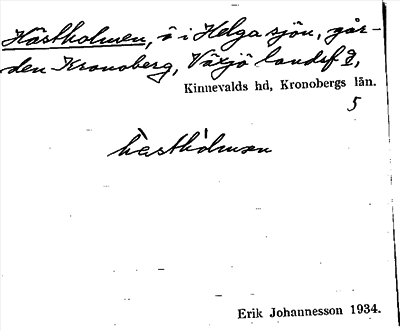 Hästholmen, ö i Helgasjön, går-
den Kronoberg, Växjö landsf 9,
Kinnevalds hd, Kronobergs län.
5
hästhòlmən
Erik Johannesson 1934.